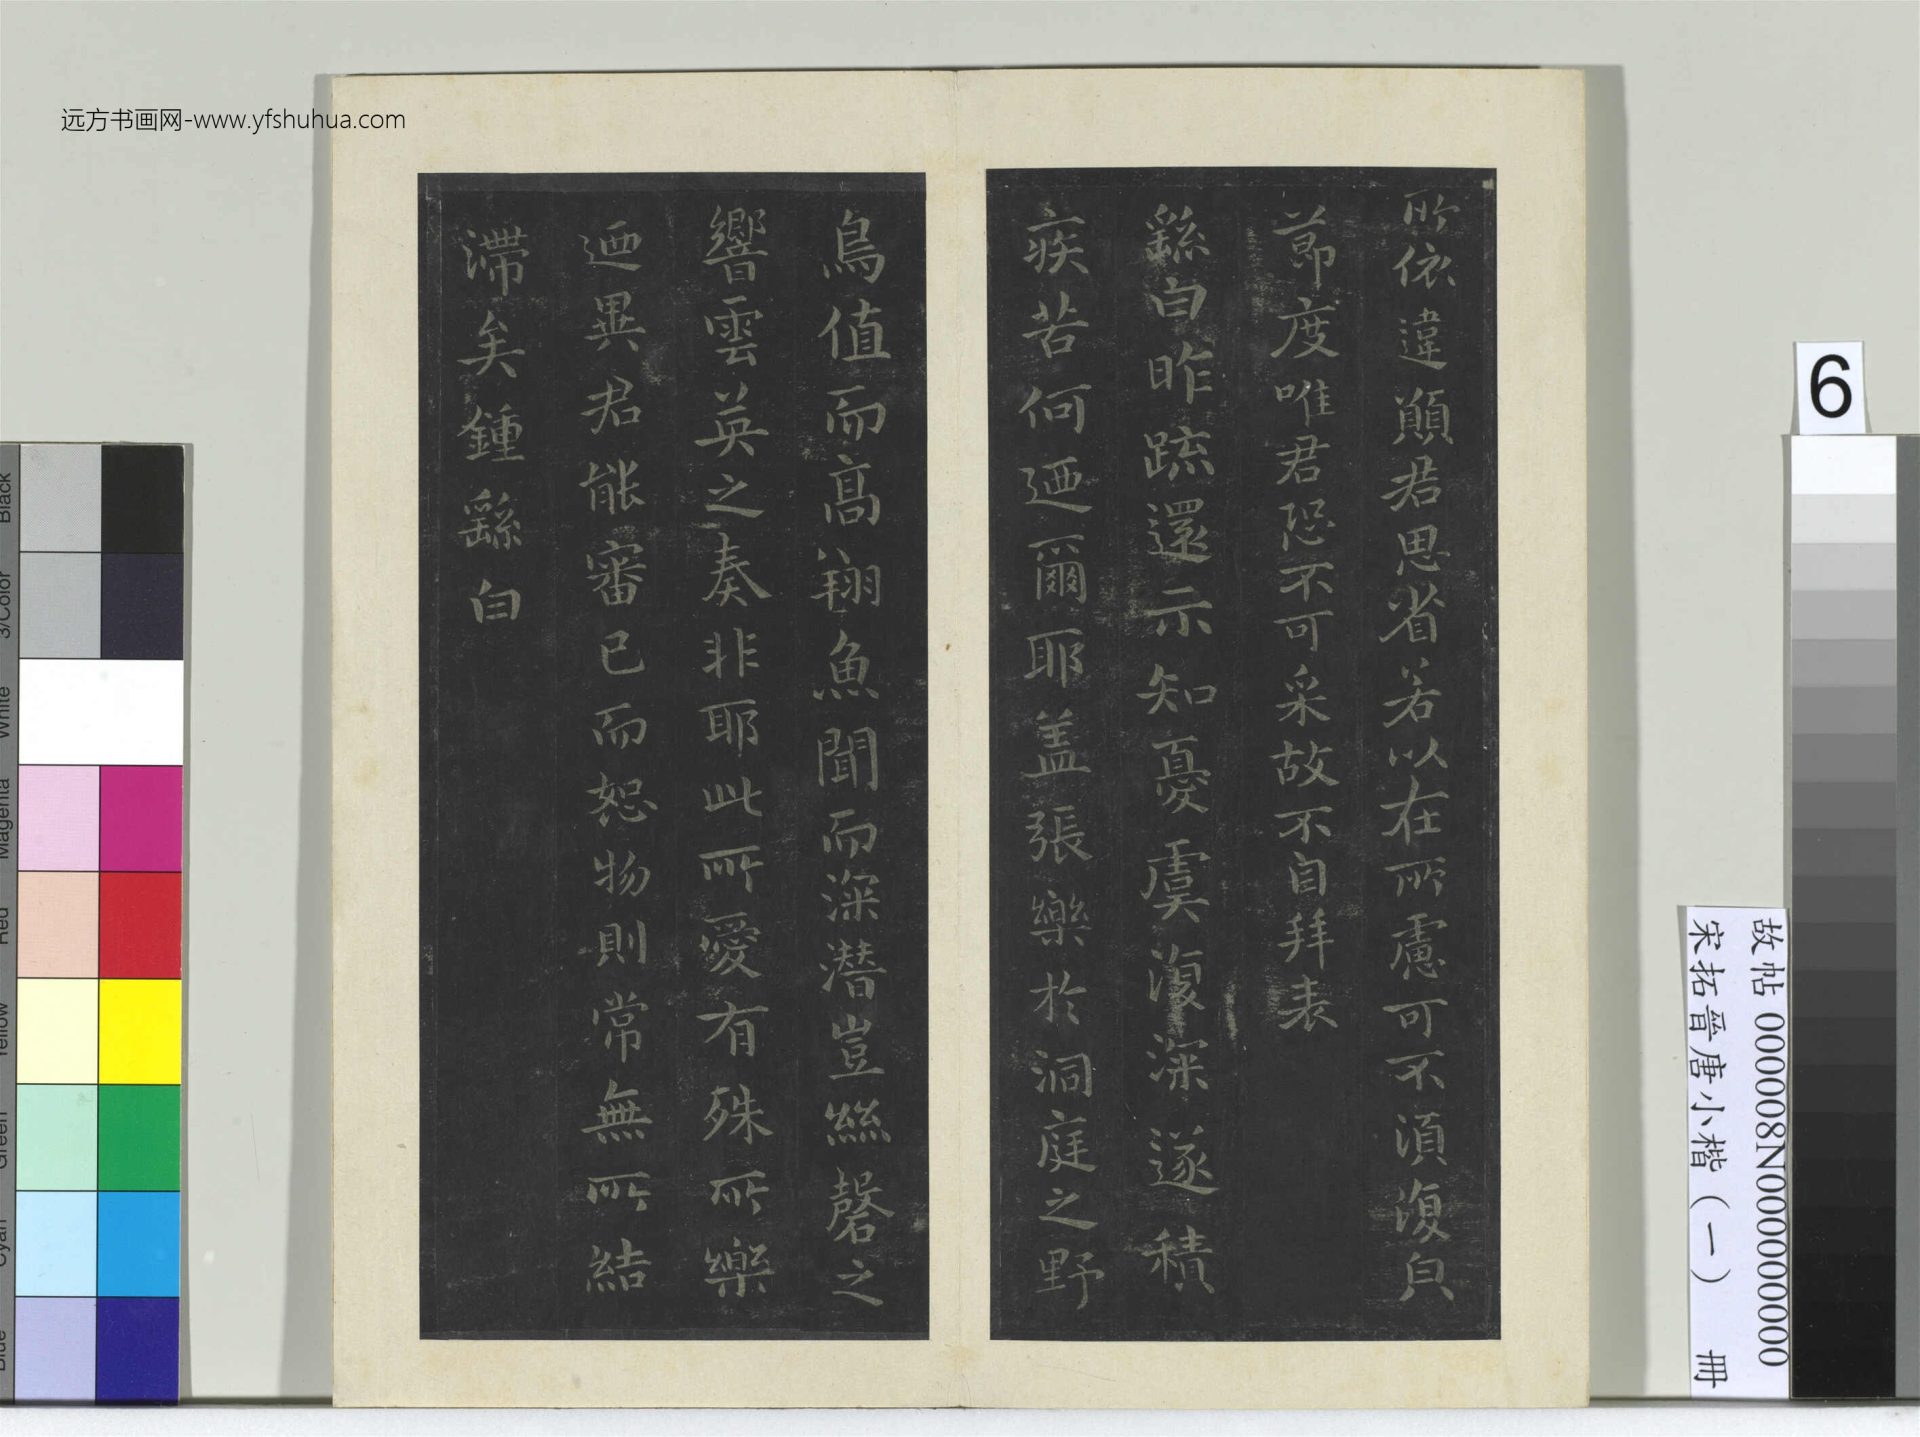 远方书画网-www.yfshuhua.com
所依違願君思省若以在所慮可不湏復皃
莭度唯君恐不可采故不自拜表
繇白昨疏還示知憂虞復深遂積
疾苦何迺爾耶盖張樂於洞庭之野
鳥值而高翔魚聞而深潛豈絲磬之
響雲英之奏非耶此所愛有殊所樂
迺異君能審己而恕物則常無所結
滯矣鍾繇白
6
故帖 000008N000000000
宋拓晋唐小楷(一) 册
Black
3/Color
White
Magenta
Red
Yellow
Green
Cyan
Blue